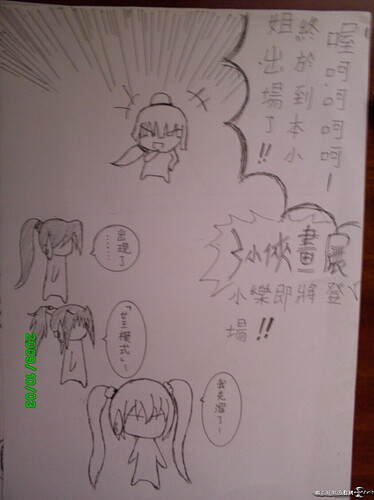 喔呵呵呵呵~
終於到本小
姐出場了!!
小俠畫展
小樂即將登
場!!
出現了
……
「女王模式」~
我先溜了~
2009/10/03